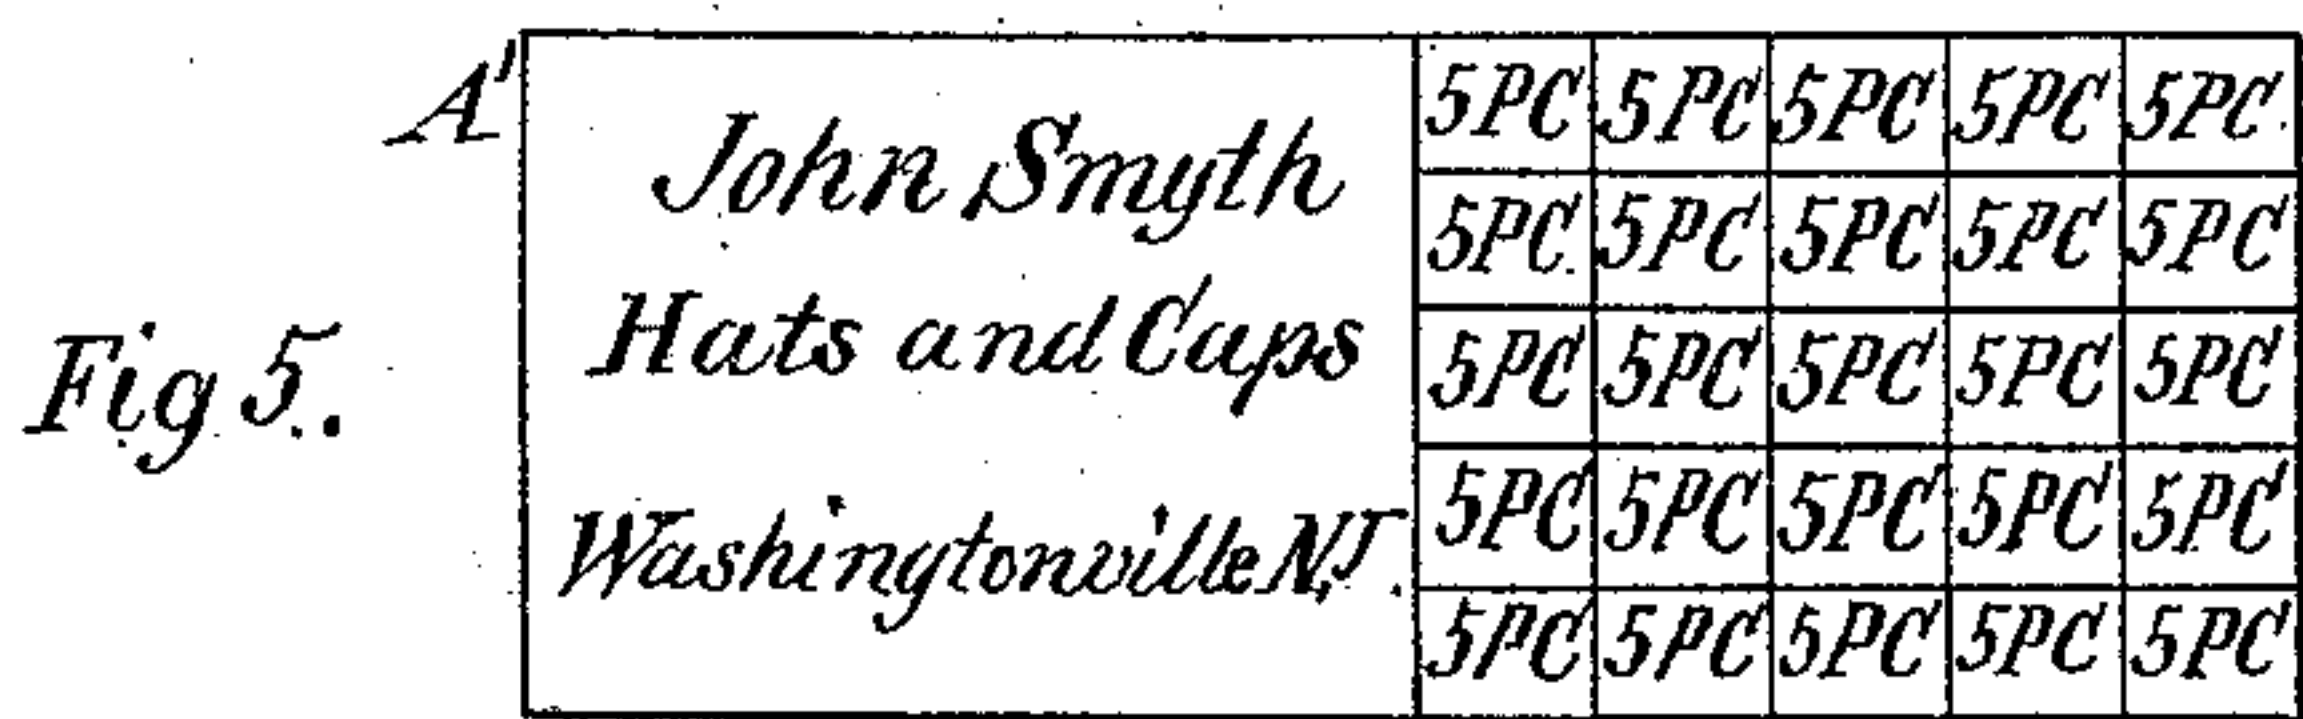 A'
John Smyth
Hats and Caps
Washingtonville N.J.
Fig 5.
5PC 5PC 5PC 5PC 5PC
5PC 5PC 5PC 5PC 5PC
5PC 5PC 5PC 5PC 5PC
5PC 5PC 5PC 5PC 5PC
5PC 5PC 5PC 5PC 5PC